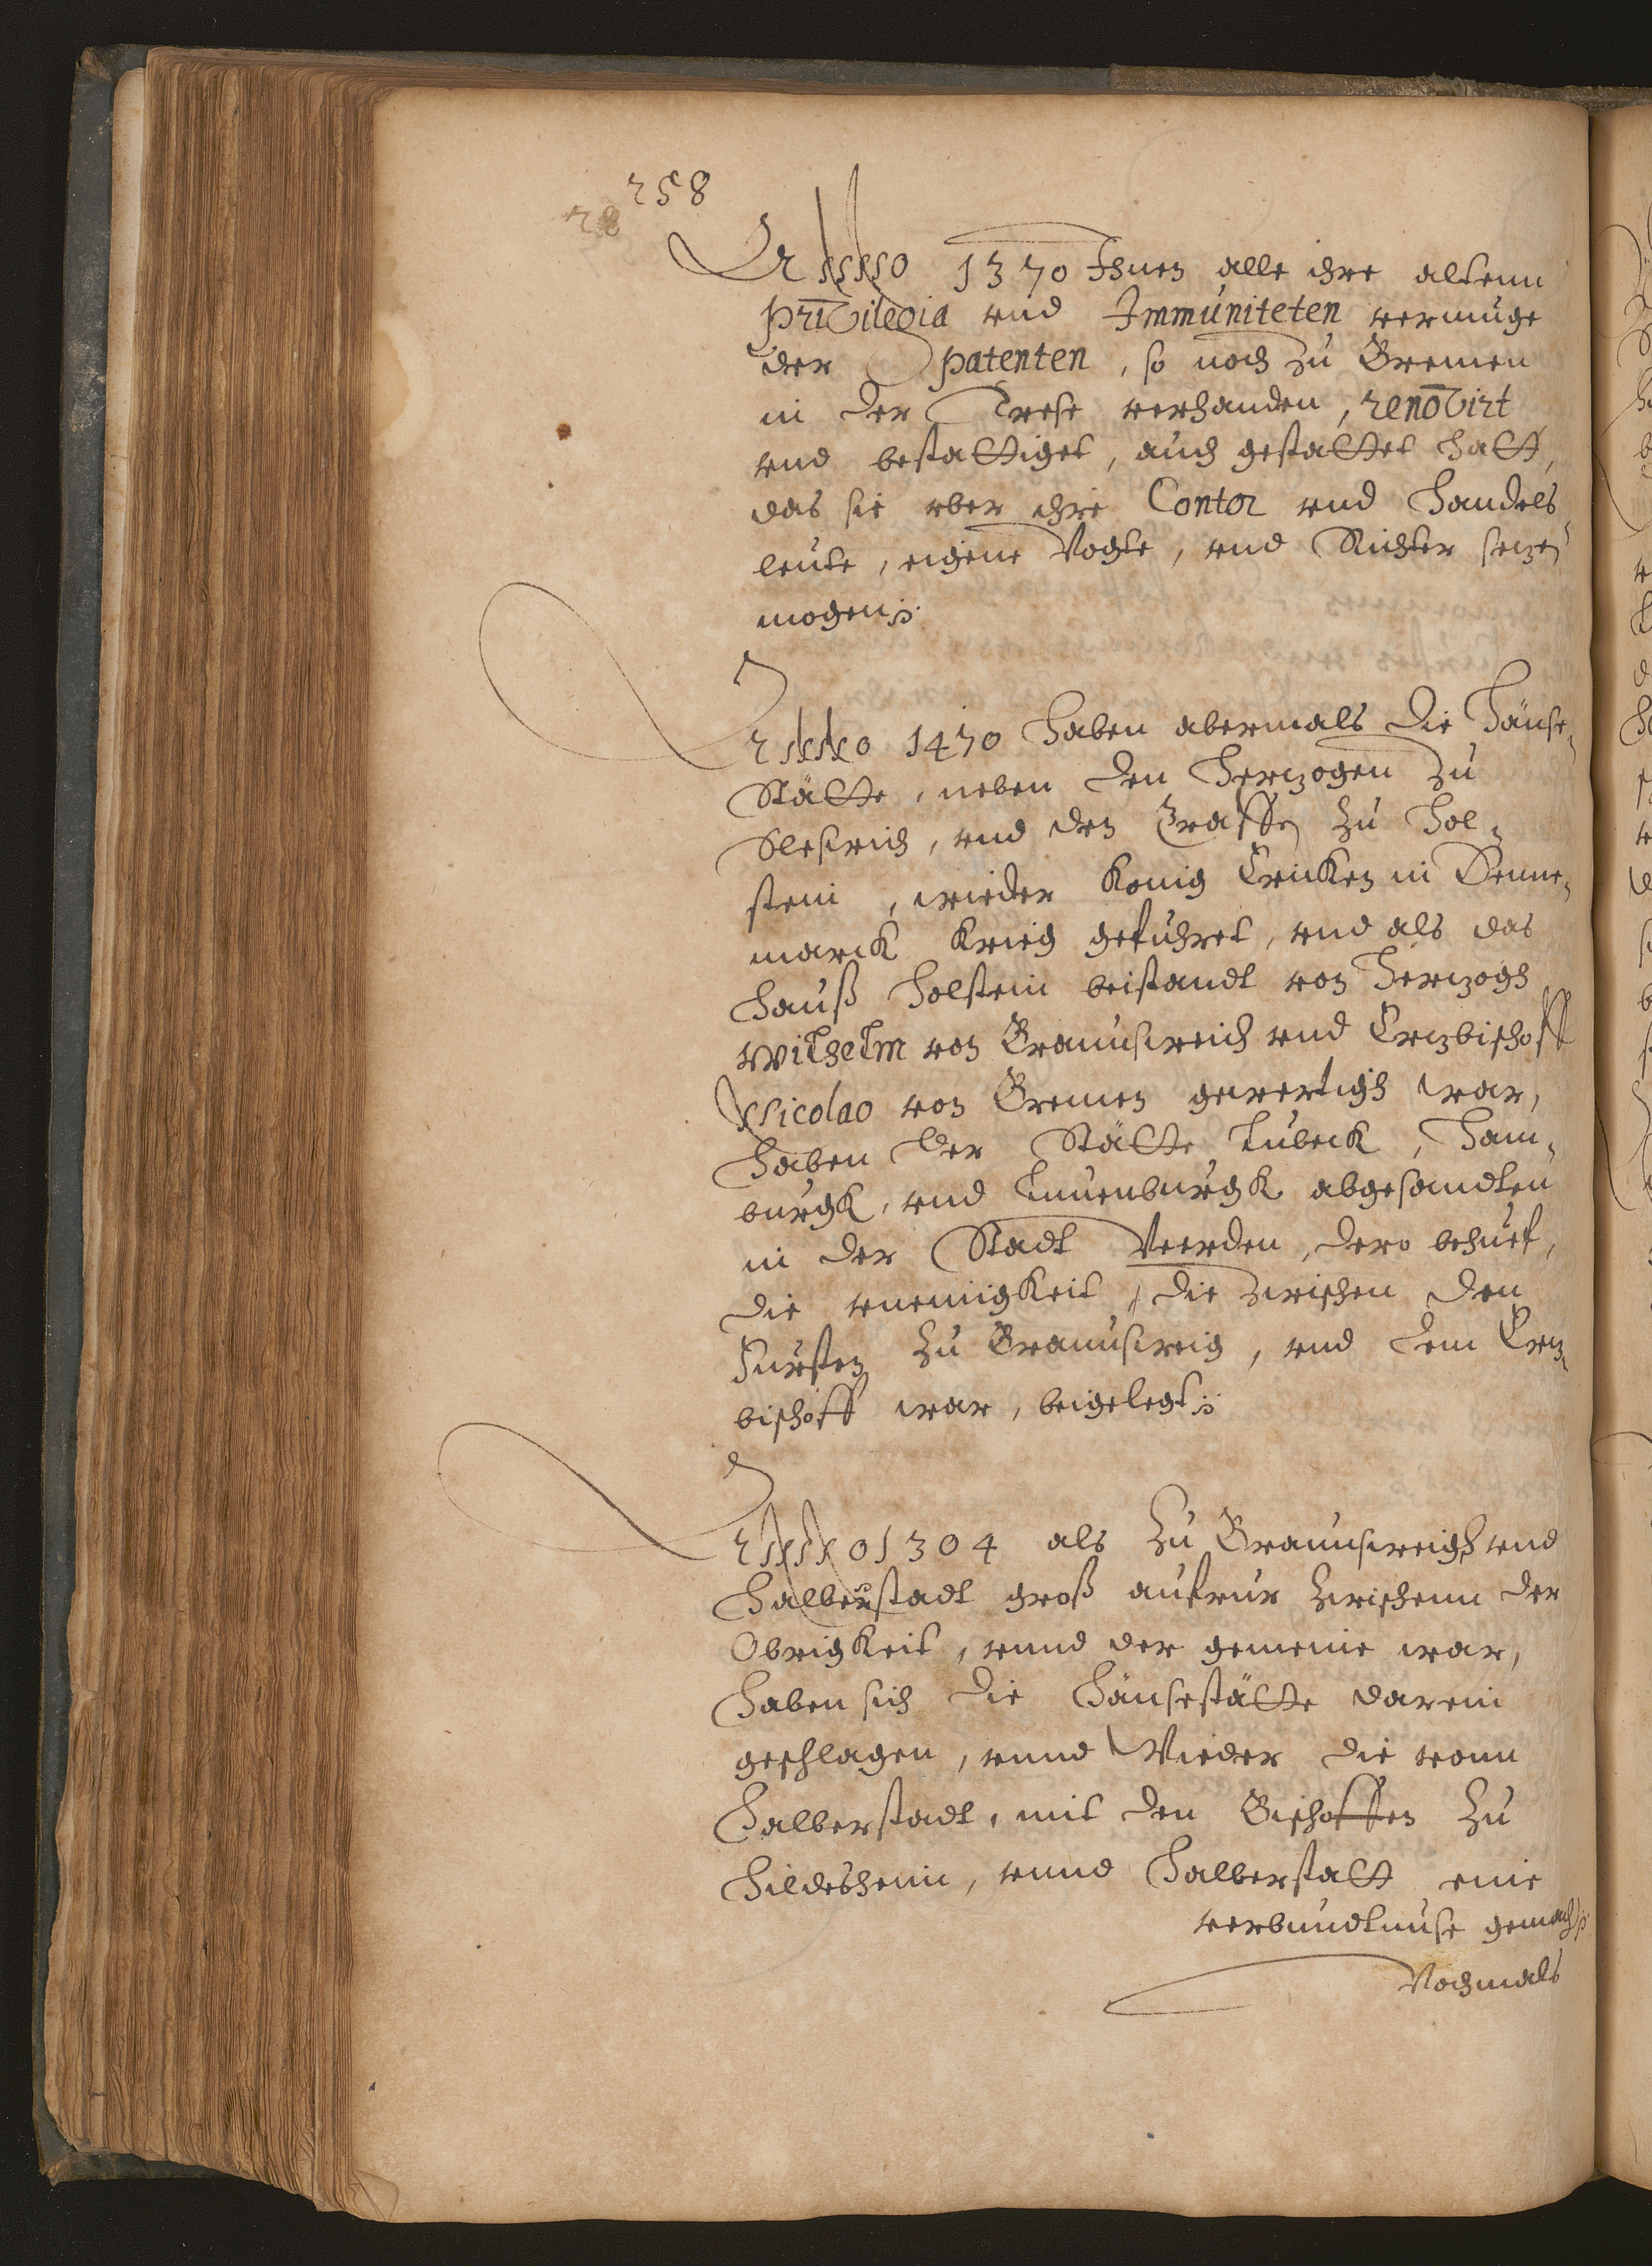 258
28
Anno 1370 Ihnen alle ihre altenn
privilegia vnd Immuniteten vermuge
der patenten, so noch zu Bremen
in der Trese verhanden, renovirt
vnd bestattiget, auch gestattet hatt,
das sie vber ihre Contor vnd handels
leute, eigene Vogte, vnd Richter setzen
mogen
Anno 1470 haben abermals die Hänse,
Stätte, neben den Hertzogen zu
Sleswich, vnd den Graffen zu Hol,
stein, wieder Konig Ericken in Denne,
marck Krieg gefuhret, vnd als das
Hauß Holstein beistandt von Hertzogh
Wilhelm von Braunswich vnd Ertzbischoff
Nicolao von Bremen gewertigh war,
Haben der Stätte Lubeck, Ham,
burgk, vnd Luneburgk abgesandten
in der Stadt Veerden, dero behuef,
die vneinigkeit, die zwischen den
Fursten zu Braunsweig, vnd dem Ertz,
bischoff war, beigelegt
Anno 1304 als zu Braunsweigh vnd
Halberstadt groß aufrur zwischenn der
Obrigkeit, vnnd der gemeine war,
Haben sich die Hänsestätte darein
geschlagen, vnnd Wieder die vonn
Halberstadt, mit den Bischoffen zu
Hildesheim, vnnd Halberstatt eine
verbundtnuse gemacht
Nochmals